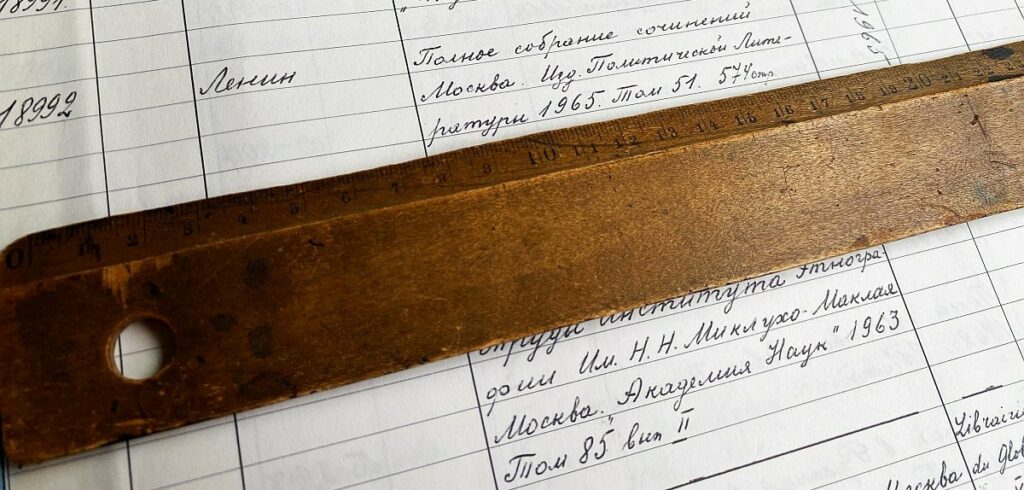 Полное собрание сочинений
Ленин
Москва. Изд. Политической Лите-
18992
ратуры 1965. Том 51. 574 стр.
1965
0 1 2 3 4 5 6 7 8 9 10 11 12 13 14 15 16 17 18 19 20 21 22 23
Труды института Этногра-
фии Им. Н. Н. Миклухо-Маклая
Москва. „Академия Наук" 1963
Том 85 вып II
Librairi
Москва du Glob